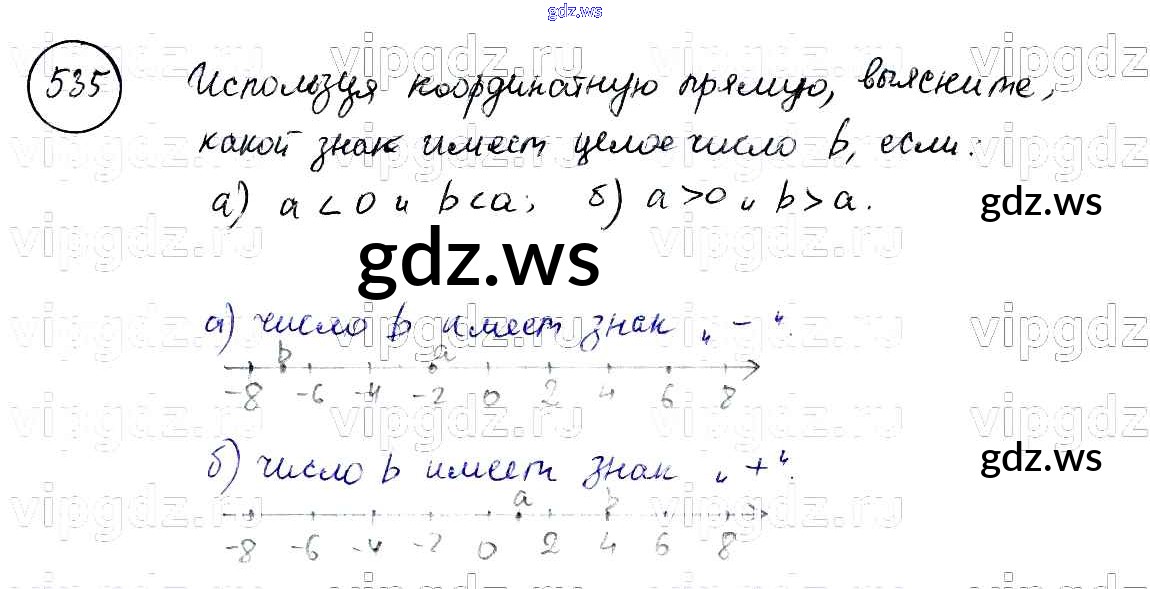 gdz.ws
535 Используя координатную прямую, выясните,
какой знак имеет целое число b, если:
а) a < 0 и b < a; б) a > 0 и b > a.
gdz.ws
gdz.ws
а) число b имеет знак „ − “.
b a
-8 -6 -4 -2 0 2 4 6 8
б) число b имеет знак „ + “.
gdz.ws
a b
-8 -6 -4 -2 0 2 4 6 8
vipgdz.ru